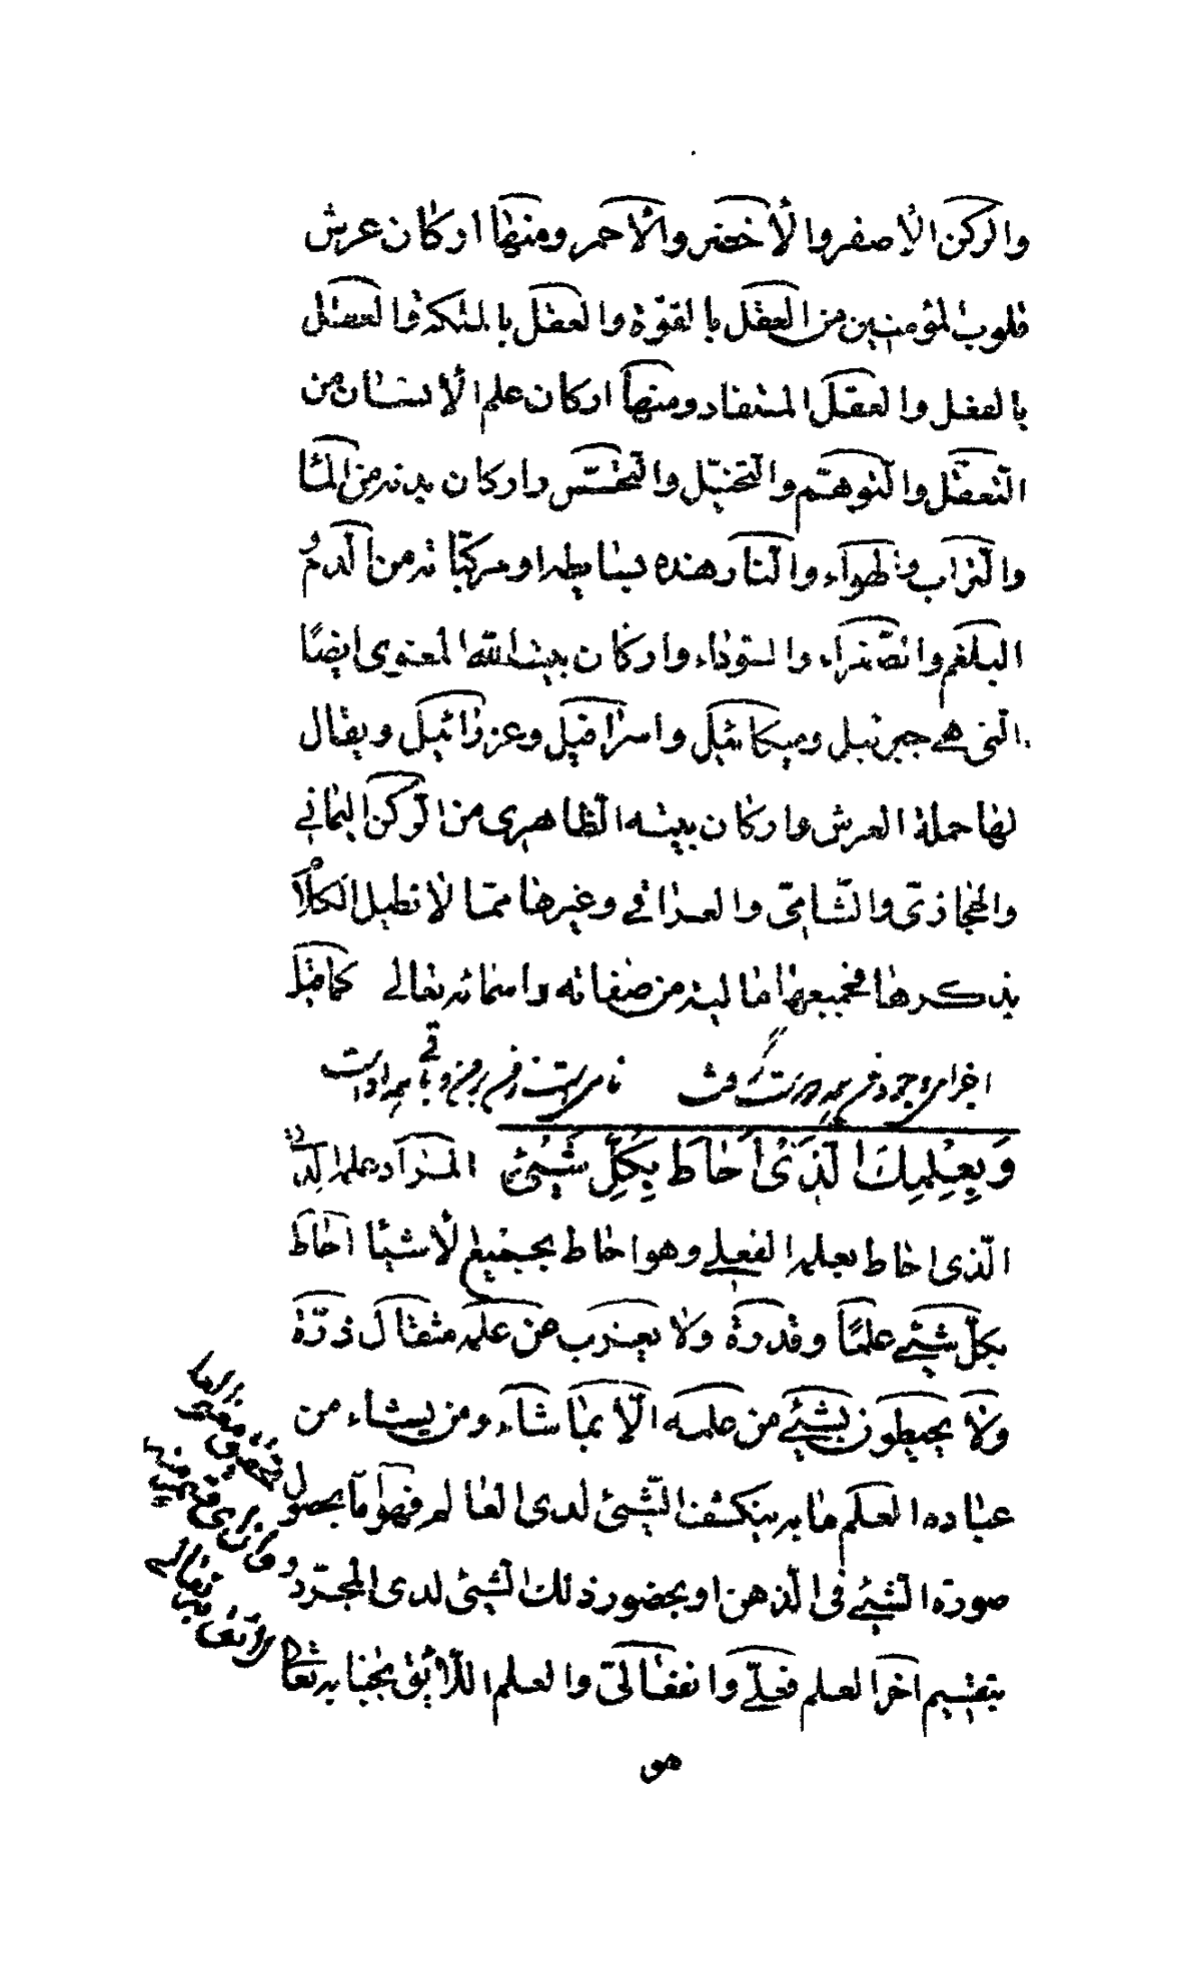 والركن الأصفر والأخضر والأحمر ومنها اركان عرش
قلوب المؤمنين من العقل بالقوة والعقل بالملكة والعقل
بالفعل والعقل المستفاد ومنها اركان علم الأنسان من
التعقل والتوهم والتخيل والتحسس واركان بدنه من الماء
والتراب والهواء والنار هذه بسايطها ومركباته من الدم و
البلغم والصفراء والسوداء واركان بيت الله المعنوى ايضًا
التى هى جبرئيل وميكائيل واسرافيل وعزرائيل ويقال
لها حملة العرش واركان بيته الظاهرى من الركن اليمانى
والحجازى والشامى والعراقى وغيرها مما لا نطيل الكلام
بذكرها فجميعها مالية من صفاته واسمائه تعالى كما قيل
اجزاى وجود من همه دوست گرفت نامى است ز من بر من و باقى همه اوست
وَبِعِلْمِكَ الَّذى اَحاطَ بِكُلِّ شَيْئٍ المراد علمه الذ
الّذى احاط بعلمه الفعلى وهو احاط بجميع الأشياء احاط
بكلّ شيئى علمًا وقدرة ولا يعزب عن علمه مثقال ذرّة
ولا يحيطون بشيئى من علمه الّا بما شاء ومن يشاء من
عباده العلم ما به ينكشف الشيئى لدى العالم فهو اما بحصول
صورة الشيئى فى الذهن او بحضور ذلك الشيئى لدى المجرّد و
بتقسيم اخر العلم فعلىّ وانفعالىّ والعلم اللّائق بجنابه تعا
هو